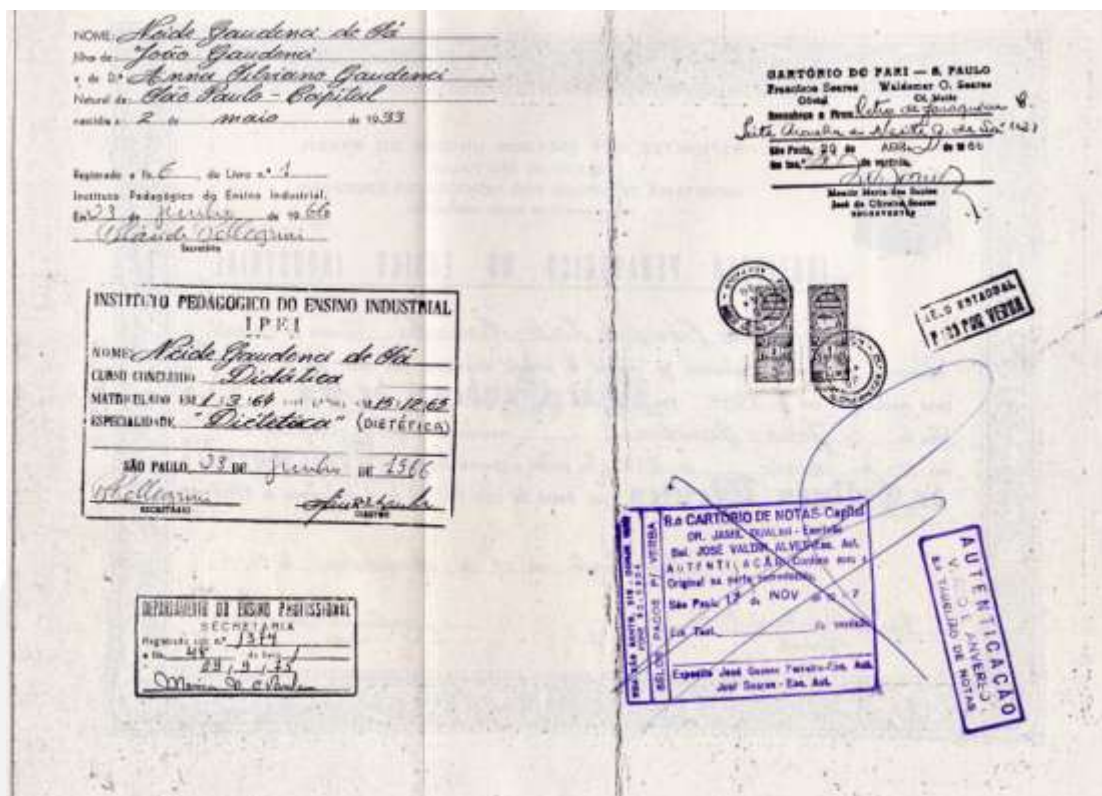 NOME: Neide Gaudenci de Sá
filha de João Gaudenci
e de D.ª Anna Silviano Gaudenci
Natural de São Paulo - Capital
nascida a 2 de maio de 1933
Registrado a fls. 6 do Livro n.º 1
Instituto Pedagógico do Ensino Industrial,
Em 23 de junho de 1966
Secretário
INSTITUTO PEDAGÓGICO DO ENSINO INDUSTRIAL
IPEI
NOME: Neide Gaudenci de Sá
CURSO CONCLUIDO Didática
MATRICULADO EM 1:3:64 15:12:65
ESPECIALIDADE "Dietética" (DIETÉTICA)
SÃO PAULO, 23 DE junho DE 1966
SECRETÁRIO DIRETOR
DEPARTAMENTO DO ENSINO PROFISSIONAL
SECRETARIA
Registrado sob nº 1374
a fls. 48 do livro 1
09/9/75
CARTÓRIO DO PARI — S. PAULO
Francisco Soares Waldemar O. Soares
Oficial Of. Maior
Reconheço a Firma
São Paulo, 20 de ABR de 1966
da verdade.
José de Oliveira Soares
ESCREVENTES
SELO ESTADUAL
PAGO POR VERBA
8.o CARTÓRIO DE NOTAS-Capital
DR. JAMIL - Escrivão
Bel. JOSÉ VALDIR ALVES-Esc. Aut.
AUTENTICAÇÃO Confere com o
Original na parte
São Paulo 17 de NOV de 7
Em Test. da verdade
José Gomes Ferreira-Esc. Aut.
José Soares - Esc. Aut.
SELOS PAGOS P/ VERBA
AUTENTICAÇÃO
VALOR E ANVERSO
8º TABELIÃO DE NOTAS